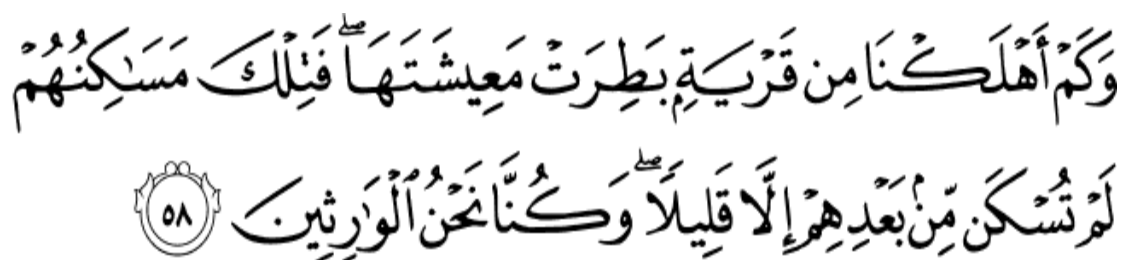 وَكَمْ أَهْلَكْنَا مِن قَرْيَةٍۭ بَطِرَتْ مَعِيشَتَهَا ۖ فَتِلْكَ مَسَـٰكِنُهُمْ
لَمْ تُسْكَن مِّنۢ بَعْدِهِمْ إِلَّا قَلِيلًا ۖ وَكُنَّا نَحْنُ ٱلْوَٰرِثِينَ ٥٨